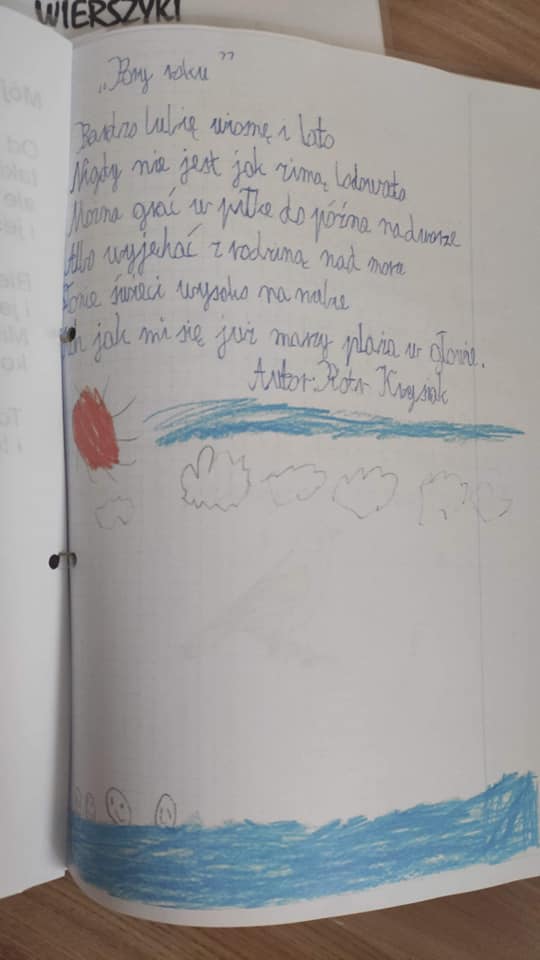 WIERSZYKI
„Pory roku”
Bardzo lubię wiosnę i lato
Nigdy nie jest jak zimą lodowato
Można grać w piłkę do późna na dworze
Albo wyjechać z rodziną nad morze
Słońce świeci wysoko na niebie
jak mi się już marzy plaża w głowie.
Autor: Piotr Krysiak